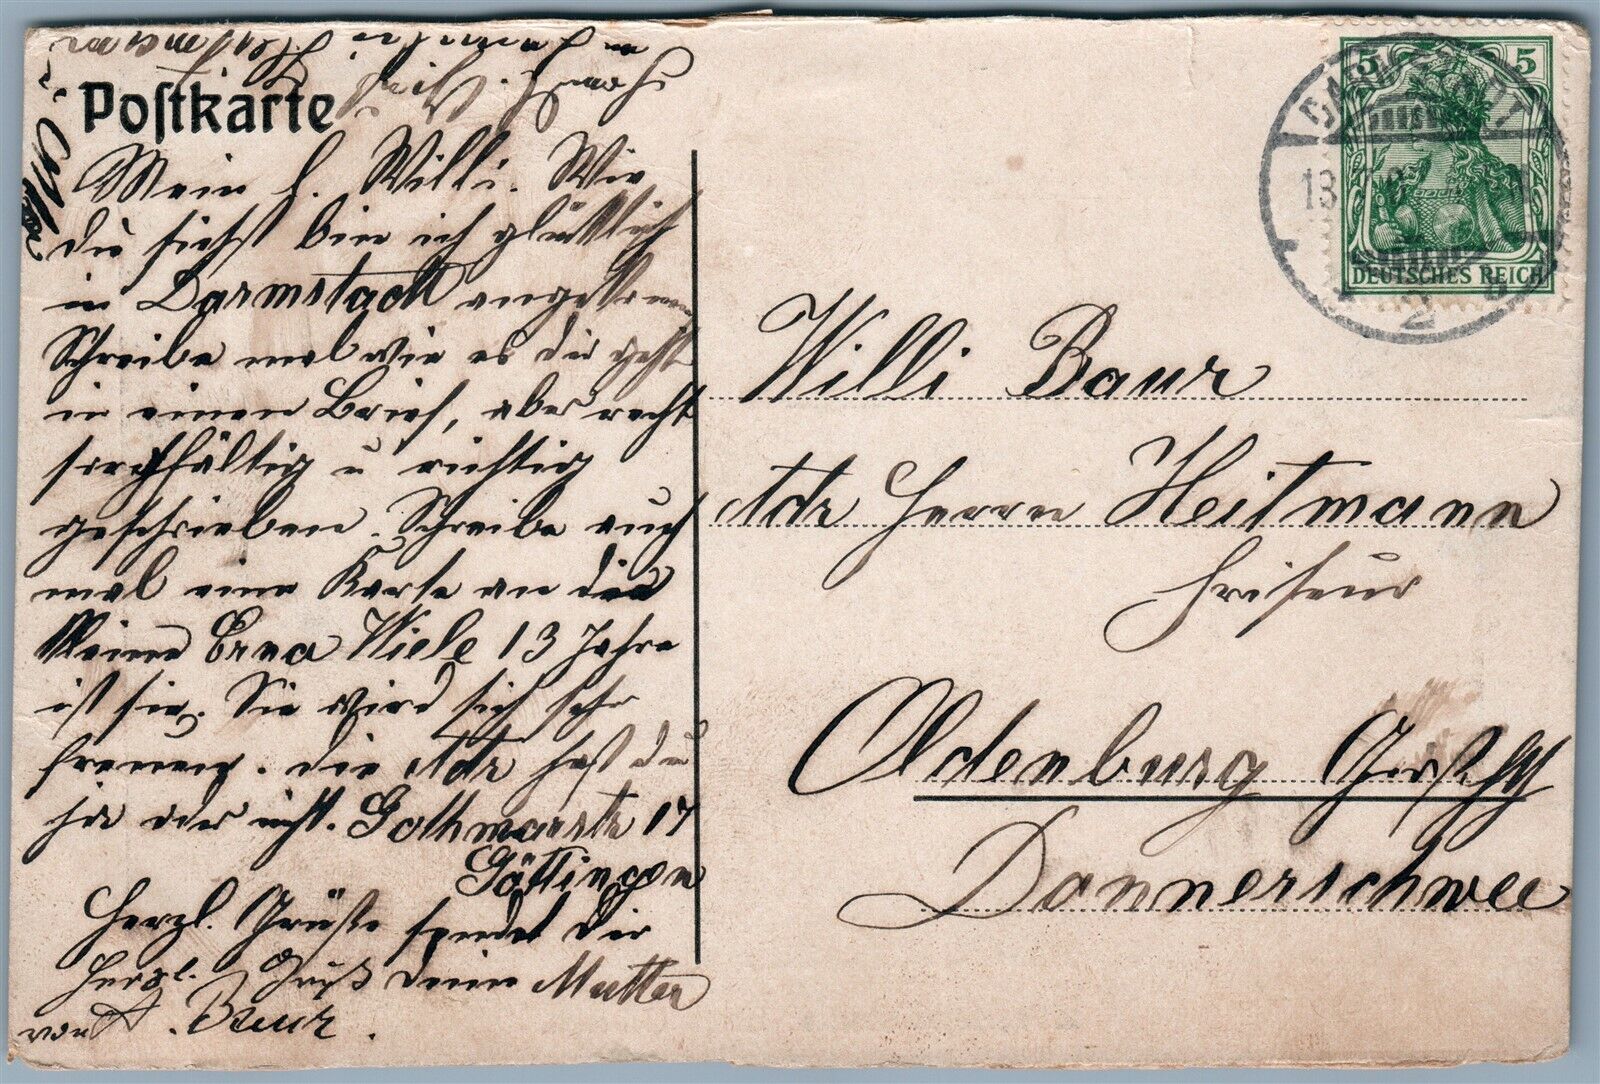 Postkarte
Mein l. Willi. Wie
du siehst bin ich glücklich
in Darmstadt angekommen
Schreibe mal wie es dir geht
in einen Brief, aber recht
sorgfältig u richtig
geschrieben. Schreibe auch
mal eine Karte an die
kleine Erna Wiele 13 Jahre
ist sie. Sie wird sich sehr
freuen. die Adr hast du
ja oder nicht. Gothmarstr 17
Göttingen
Herzl. Grüße sendet dir
Herzl. Gruß deine Mutter
von A. Baur.
5 5
DEUTSCHES REICH
DARMSTADT
13
2
Willi Baur
Adr Herrn Heitmann
Friseur
Oldenburg
Donnerschwee